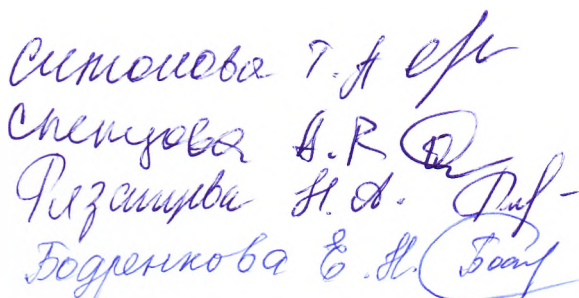 Симонова Т. А
Спенцова А. Р
Рязанцева Н. А.
Бодренкова Е. Н.